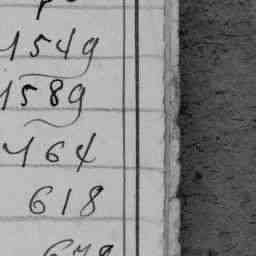 1549
1589
464
618